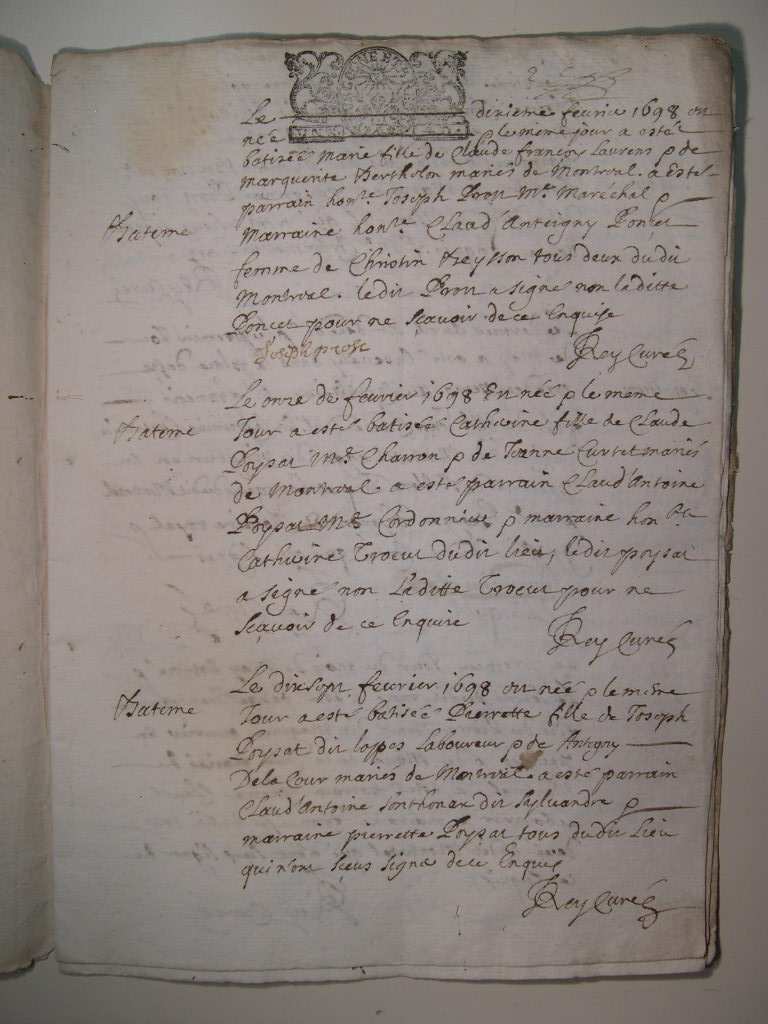 Le dixieme fevrie 1698 on
née & le meme jour a esté
Batême
batisée marie fille de Claude françois Laurens & de
marguerite Bertholon mariés de Montreal. a Esté
parrain hon.re Joseph Prou M.re Maréchal &
marraine hon.te Claud'Anteigny Poncet
femme de Christin Reysson tous deux dudit
Montreal. ledit Prou a signe non laditte
Poncet pour ne sçavoir de ce Enquise
Joseph prost
JRey Curé
Batême
Le onze de fevrier 1698 En née & le meme
Jour a esté batisée Catherine fille de Claude
Poysat M.e Charron & de Jeanne Curtet mariés
de Montreal a esté parrain Claud'Antoine
Poysat M.e Cordonnier & marraine hon.ble
Catherine dudit lieu, ledit poysat
a signé non Laditte pour ne
sçavoir de ce Enquise
JRey Curé
Batême
Le dixsept fevrier 1698 on née & le mesme
Jour a esté batisée Pierrette fille de Joseph
Poysat dit lopes Laboureur & de Antigny
Dela Cour mariés de Montreal a esté parrain
Claud'Antoine Sonthonax dit Sylvandre &
marraine pierrette Poysat tous dudit Lieu
qui n'ont sceus signe de ce Enquis
JRey Curé